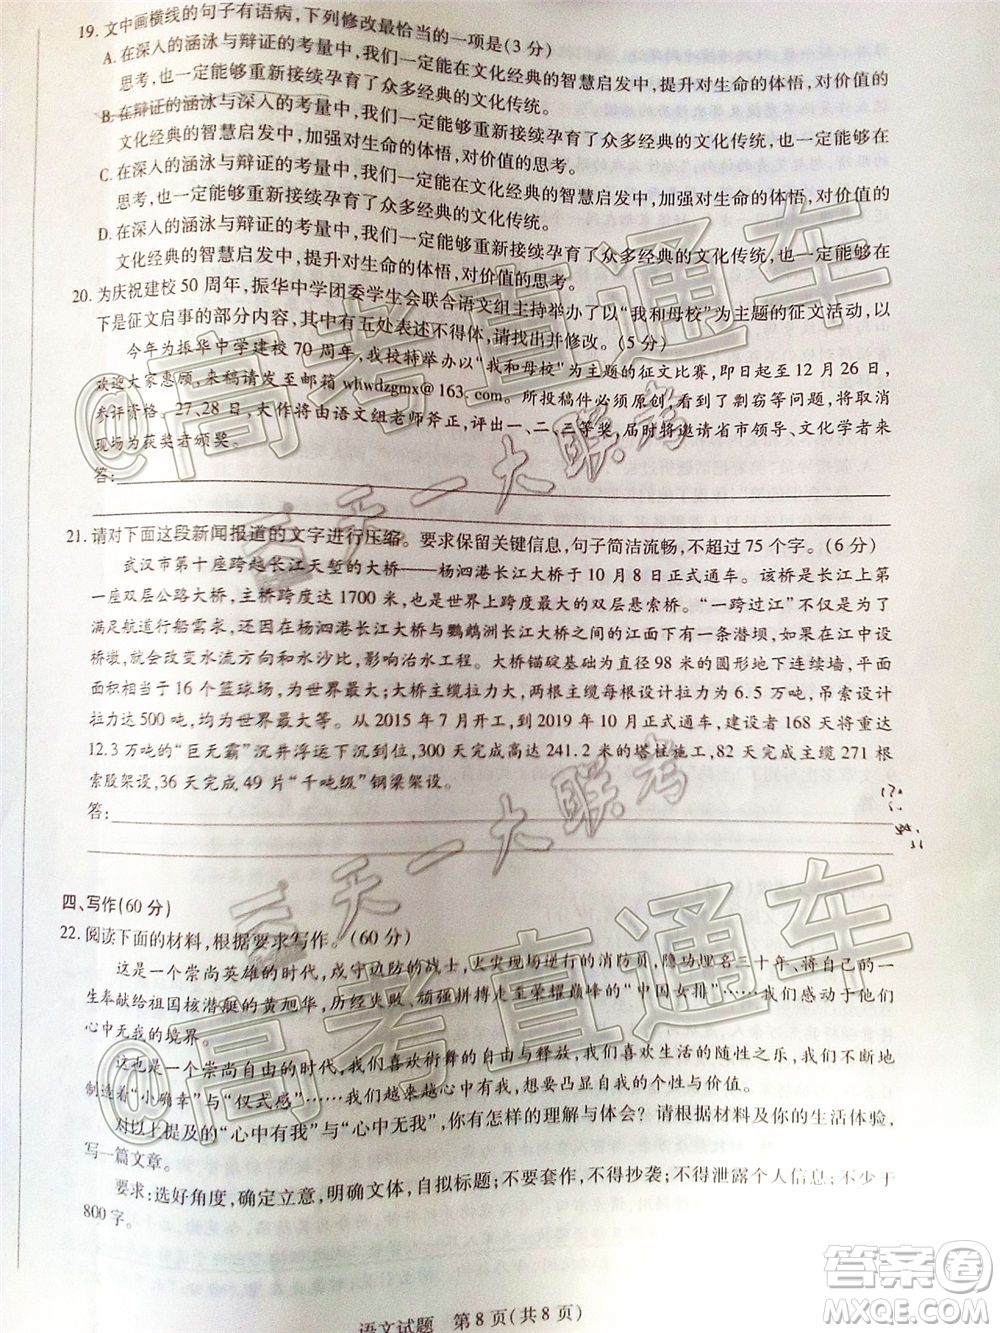 19. 文中画横线的句子有语病,下列修改最恰当的一项是(3 分)
A. 在深入的涵泳与辩证的考量中,我们一定能在文化经典的智慧启发中,提升对生命的体悟,对价值的
思考,也一定能够重新接续孕育了众多经典的文化传统。
B. 在辩证的涵泳与深入的考量中,我们一定能够重新接续孕育了众多经典的文化传统,一定能在
文化经典的智慧启发中,加强对生命的体悟,对价值的思考。
C. 在深入的涵泳与辩证的考量中,我们一定能在文化经典的智慧启发中,加强对生命的体悟,对价值的
思考,也一定能够重新接续孕育了众多经典的文化传统。
D. 在深入的涵泳与辩证的考量中,我们一定能够重新接续孕育了众多经典的文化传统,也一定能在
文化经典的智慧启发中,提升对生命的体悟,对价值的思考。
20. 为庆祝建校 50 周年,振华中学团委学生会联合语文组主持举办了以“我和母校”为主题的征文活动,
下是征文启事的部分内容,其中有五处表述不得体,请找出并修改。(5 分)
今年为振华中学建校 70 周年,我校特举办以“我和母校”为主题的征文比赛,即日起至 12 月 26 日,
欢迎大家惠顾,来稿请发至邮箱 whwdzgmx@163.com。所投稿件必须原创,若发现了剽窃等问题,将取消
参评资格。27、28 日,大作将由语文组老师斧正,评出一、二、三等奖,届时将邀请省市领导、文化学者来
现场为获奖者颁奖。
答:
21. 请对下面这段新闻报道的文字进行压缩。要求保留关键信息,句子简洁流畅,不超过 75 个字。(6 分)
武汉市第十座跨越长江天堑的大桥——杨泗港长江大桥于 10 月 8 日正式通车。该桥是长江上第
一座双层公路大桥,主桥跨度达 1700 米,也是世界上跨度最大的双层悬索桥。“一跨过江”不仅是为了
满足航道行船需求,还因为在杨泗港长江大桥与鹦鹉洲长江大桥之间的江面下有一条潜坝,如果在江中设
桥墩,就会改变水流方向和水沙比,影响治水工程。大桥锚碇基础为直径 98 米的圆形地下连续墙,平面
面积达到 16 个篮球场,为世界最大;大桥主缆拉力大,两根主缆拉力均为 6.5 万吨,吊索设计
拉力达 500 吨,均为世界最大等。从 2015 年 7 月开工,到 2019 年 10 月正式通车,建设者 168 天将重达
12.3 万吨的“巨无霸”沉井浮运下沉到位,300 天完成高达 241.2 米的塔柱施工,82 天完成主缆 271 根
索股架设,36 天完成 49 片“千吨级”钢梁架设。
答:
四、写作(60 分)
22. 阅读下面的材料,根据要求写作。(60 分)
这是一个崇尚英雄的时代,戍守边防的战士,火灾现场逆行的消防员,隐功埋名三十年、将一
生奉献给祖国核潜艇的黄旭华,历经失败、顽强拼搏走至荣耀巅峰的“中国女排”……我们感动于
心中无我的境界。
这也是一个崇尚自由的时代,我们喜欢街舞的自由与释放,我们喜欢生活的随性之乐,我们不断
制造着“小确幸”与“仪式感”……我们越来越心中有我,也越来越追求自我。
对以上提及的“心中有我”与“心中无我”,你有怎样的理解与体会?请根据材料及你的生活体验,
写一篇文章。
要求:选好角度,确定立意,明确文体,自拟标题;不要套作,不得抄袭;不得泄露个人信息;不少于
800 字。
语文试题 第 8 页(共 8 页)
@高考直通车
天一大联考
天一大联考
@高考直通车
答案圈
MXQE.COM